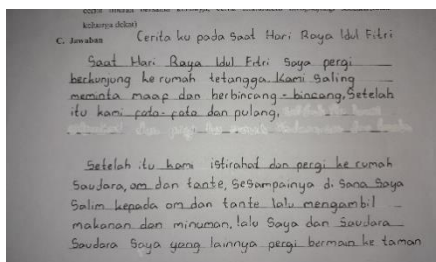 keluarga dekat)
C. Jawaban Cerita ku pada Saat Hari Raya Idul Fitri
Saat Hari Raya Idul Fitri Saya pergi
berkunjung ke rumah tetangga. Kami Saling
meminta maaf dan berbincang - bincang, Setelah
itu kami foto - foto dan pulang.
Setelah itu kami istirahat dan pergi ke rumah
Saudara, om dan tante, Sesampainya di Sana Saya
Salim kepada om dan tante lalu mengambil
makanan dan minuman, lalu Saya dan Saudara
Saudara Saya yang lainnya pergi bermain ke taman